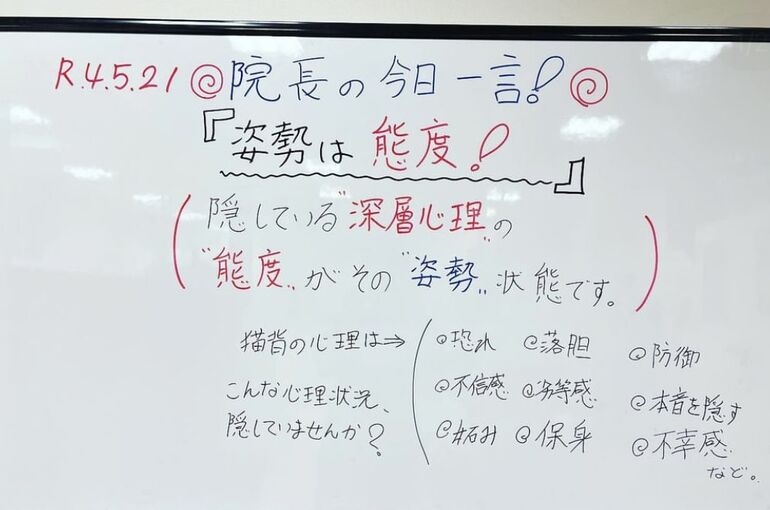 R.4.5.21 院長の今日一言!
『姿勢は態度!』
(隠している"深層心理"の
"態度"がその"姿勢"状態です。)
猫背の心理は⇒
こんな心理状況、
隠していませんか?
◎恐れ ◎落胆 ◎防御
◎不信感 ◎劣等感 ◎本音を隠す
◎妬み ◎保身 ◎不幸感
など。